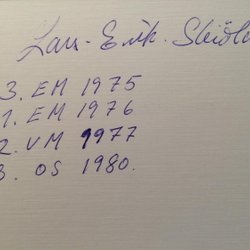 Lars-Erik. Skiöld
3. EM 1975
1. EM 1976
2. VM 1977
3. OS 1980.